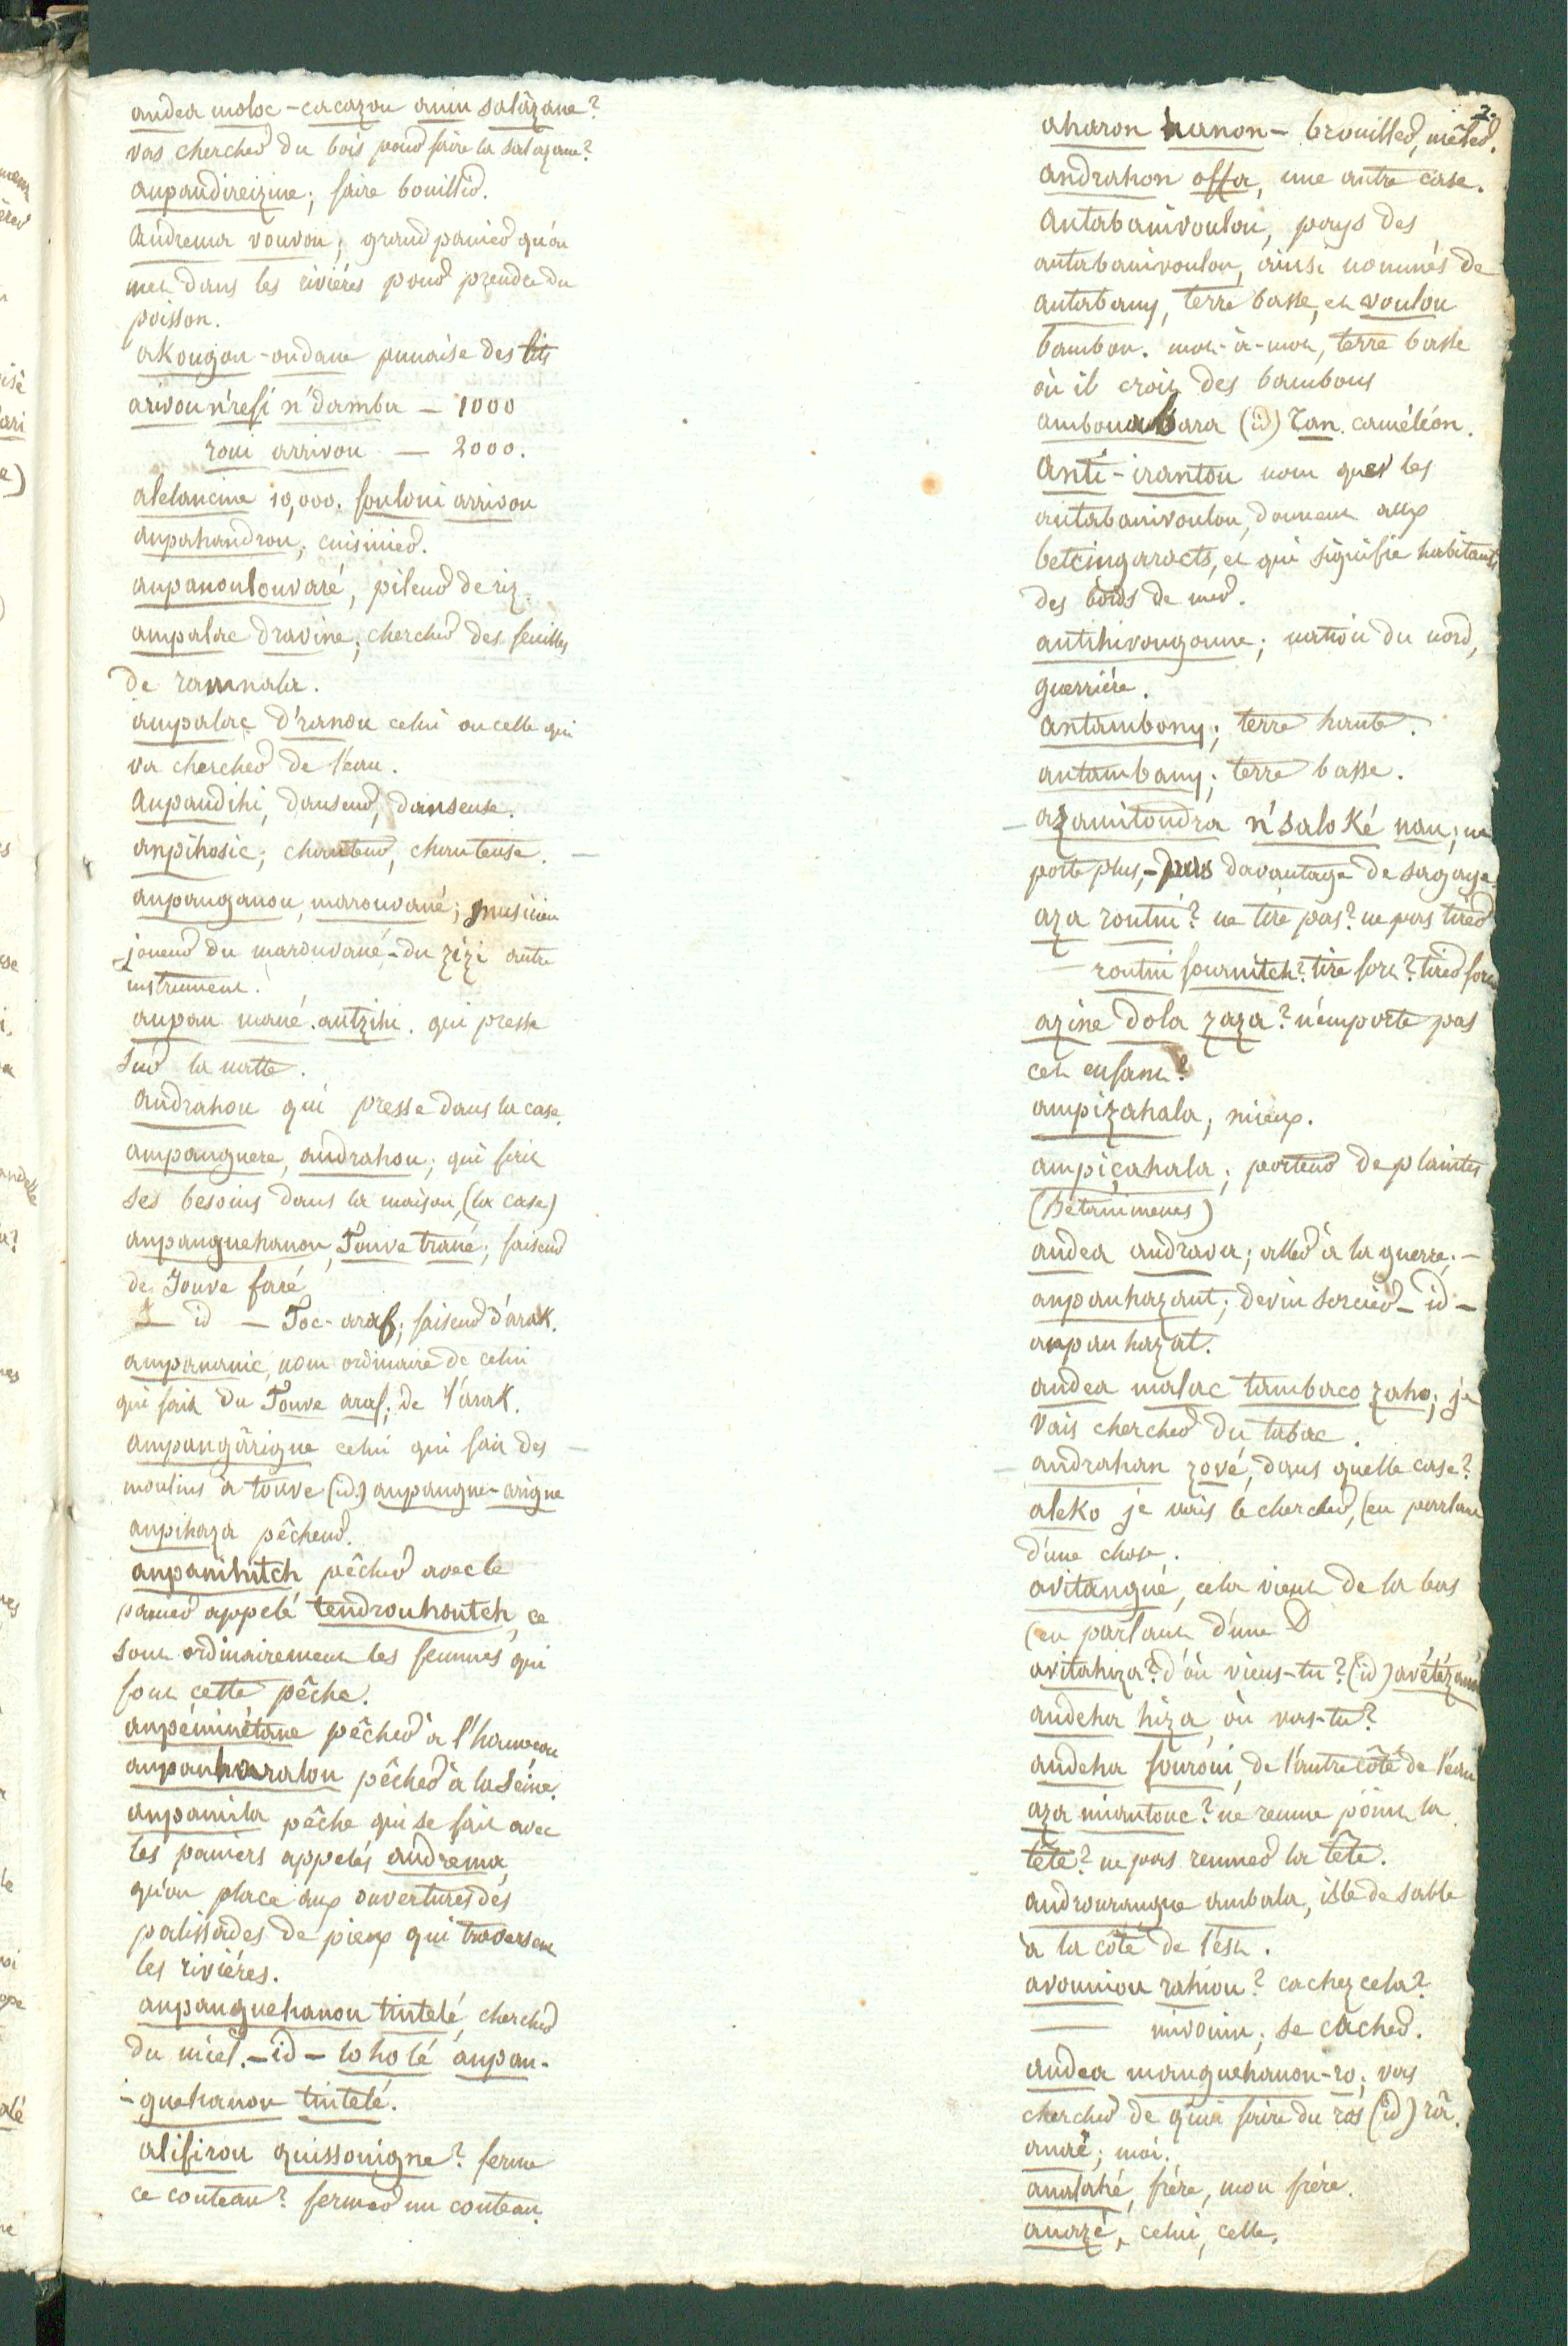 andea moloc - cacazou anin salàzane?
vas chercher du bois pour faire la salazane?
anpandireizine; faire bouillir.
Andrema vouvou; grand panier qu'on
met dans les riviéres pour prendre du
poisson.
akougou - ondane punaise des lits
arivou n'refi n'damba — 1000
roui arrivou — 2000.
alelancine 10,000. fouloni arrivou
anpahandrou; cuisinier.
anpanoulouvaré, pileur de riz.
ampalac dravine; chercher des feuilles
de ravinala.
ampalac d'ranou celui ou celle qui
va chercher de l'éau.
Anpandihi, danseur, danseuse.
anpihosic; chanteur, chanteuse. —
anpanganou, marouvané; musicien
joueur du marouvané - du zizi autre
instrument.
anpan mané. antzihi. qui presse
sur la natte.
andrahou qui presse dans la case.
ampanguere, andrahou; qui fait
ses besoins dans la maison, (la case)
anpanguehanou, Touve trané; faiseur
de Touve faré
— id — Toc-araf; faiseur d'arak.
ampananic, nom ordinaire de celui
qui fait du Touve araf; de l'arak.
ampangârigne celui qui fait des —
moulins à touve (id.) anpangne-arigne
anpihaza pêcheur.
anpanihitch pêcher avec le
panier appelé tendrouhoutch, ce
sont ordinairement les femmes qui
font cette pêche.
anpéminétane pêcher à l'hameçon
anpanharatou pêcher à la Séine.
anpamila pêche qui se fait avec
les paniers appelés andrema,
qu'on place aux ouvertures des
palissades de pieux qui traversent
les riviéres.
anpanguehanou tintelé, chercher
du miel. - id - loholé anpan-
-guehanou tintelé.
alifirou quissouigne? ferme
ce couteau? fermer un couteau.
2.
aharon hanon - brouiller, mêler.
andrahon offa, une autre case.
Antabanivoulou, pays des
antabanivoulou, ainsi nommés de
antabany, terre basse, et voulou
bambou. mot-à-mot, terre basse
où il croit des bambous
ambouabara (id) Tan. caméléon.
Anti-irantou nom que les
antabanivoulou, donnent aux
betcingaracts, et qui signifie habitants
des bords de mer.
antihivougoune; nation du nord,
guerriére.
antambony; terre haute.
antambany; terre basse.
— azamitondra n'saloké nau; ne
porte plus, - pas davantage de sagaye.
aza routni? ne tire pas? ne pas tirer
— routni fournitch? tire fort? tirer fort
azine dola zaza? n'emporte pas
cet enfant?
ampizahala; mieux.
ampiçahala; porteur de plaintes
(Bétanimenes)
andea andrava; aller à la guerre. —
anpanhazaut; devin sorcier - id -
anpan hazat.
andea malac tambaco zaho; je
vais chercher du tabac.
— andrahan zové, dans quelle case?
aleko je vais le chercher, (en parlant
d'une chose.
avitangué, cela vient de la bas
(en parlant d'une D
avitahiza? d'où viens-tu? (id) avétéza
andeha hiza, où vas-tu?
andeha fouroui, de l'autre côté de l'éau
aza miantouc? ne remue point la
tête? ne pas remuer la tête.
androurangue ambala, isle de sable
à la côté de l'ést.
avouniou rahiou? cachez cela?
— mivouin; se cacher.
andea manguehanou-ro; vas
chercher de quoi faire du ros (id) rô.
anaé; moi.
analahé, frére, mon frére.
anazé, celui, celle,